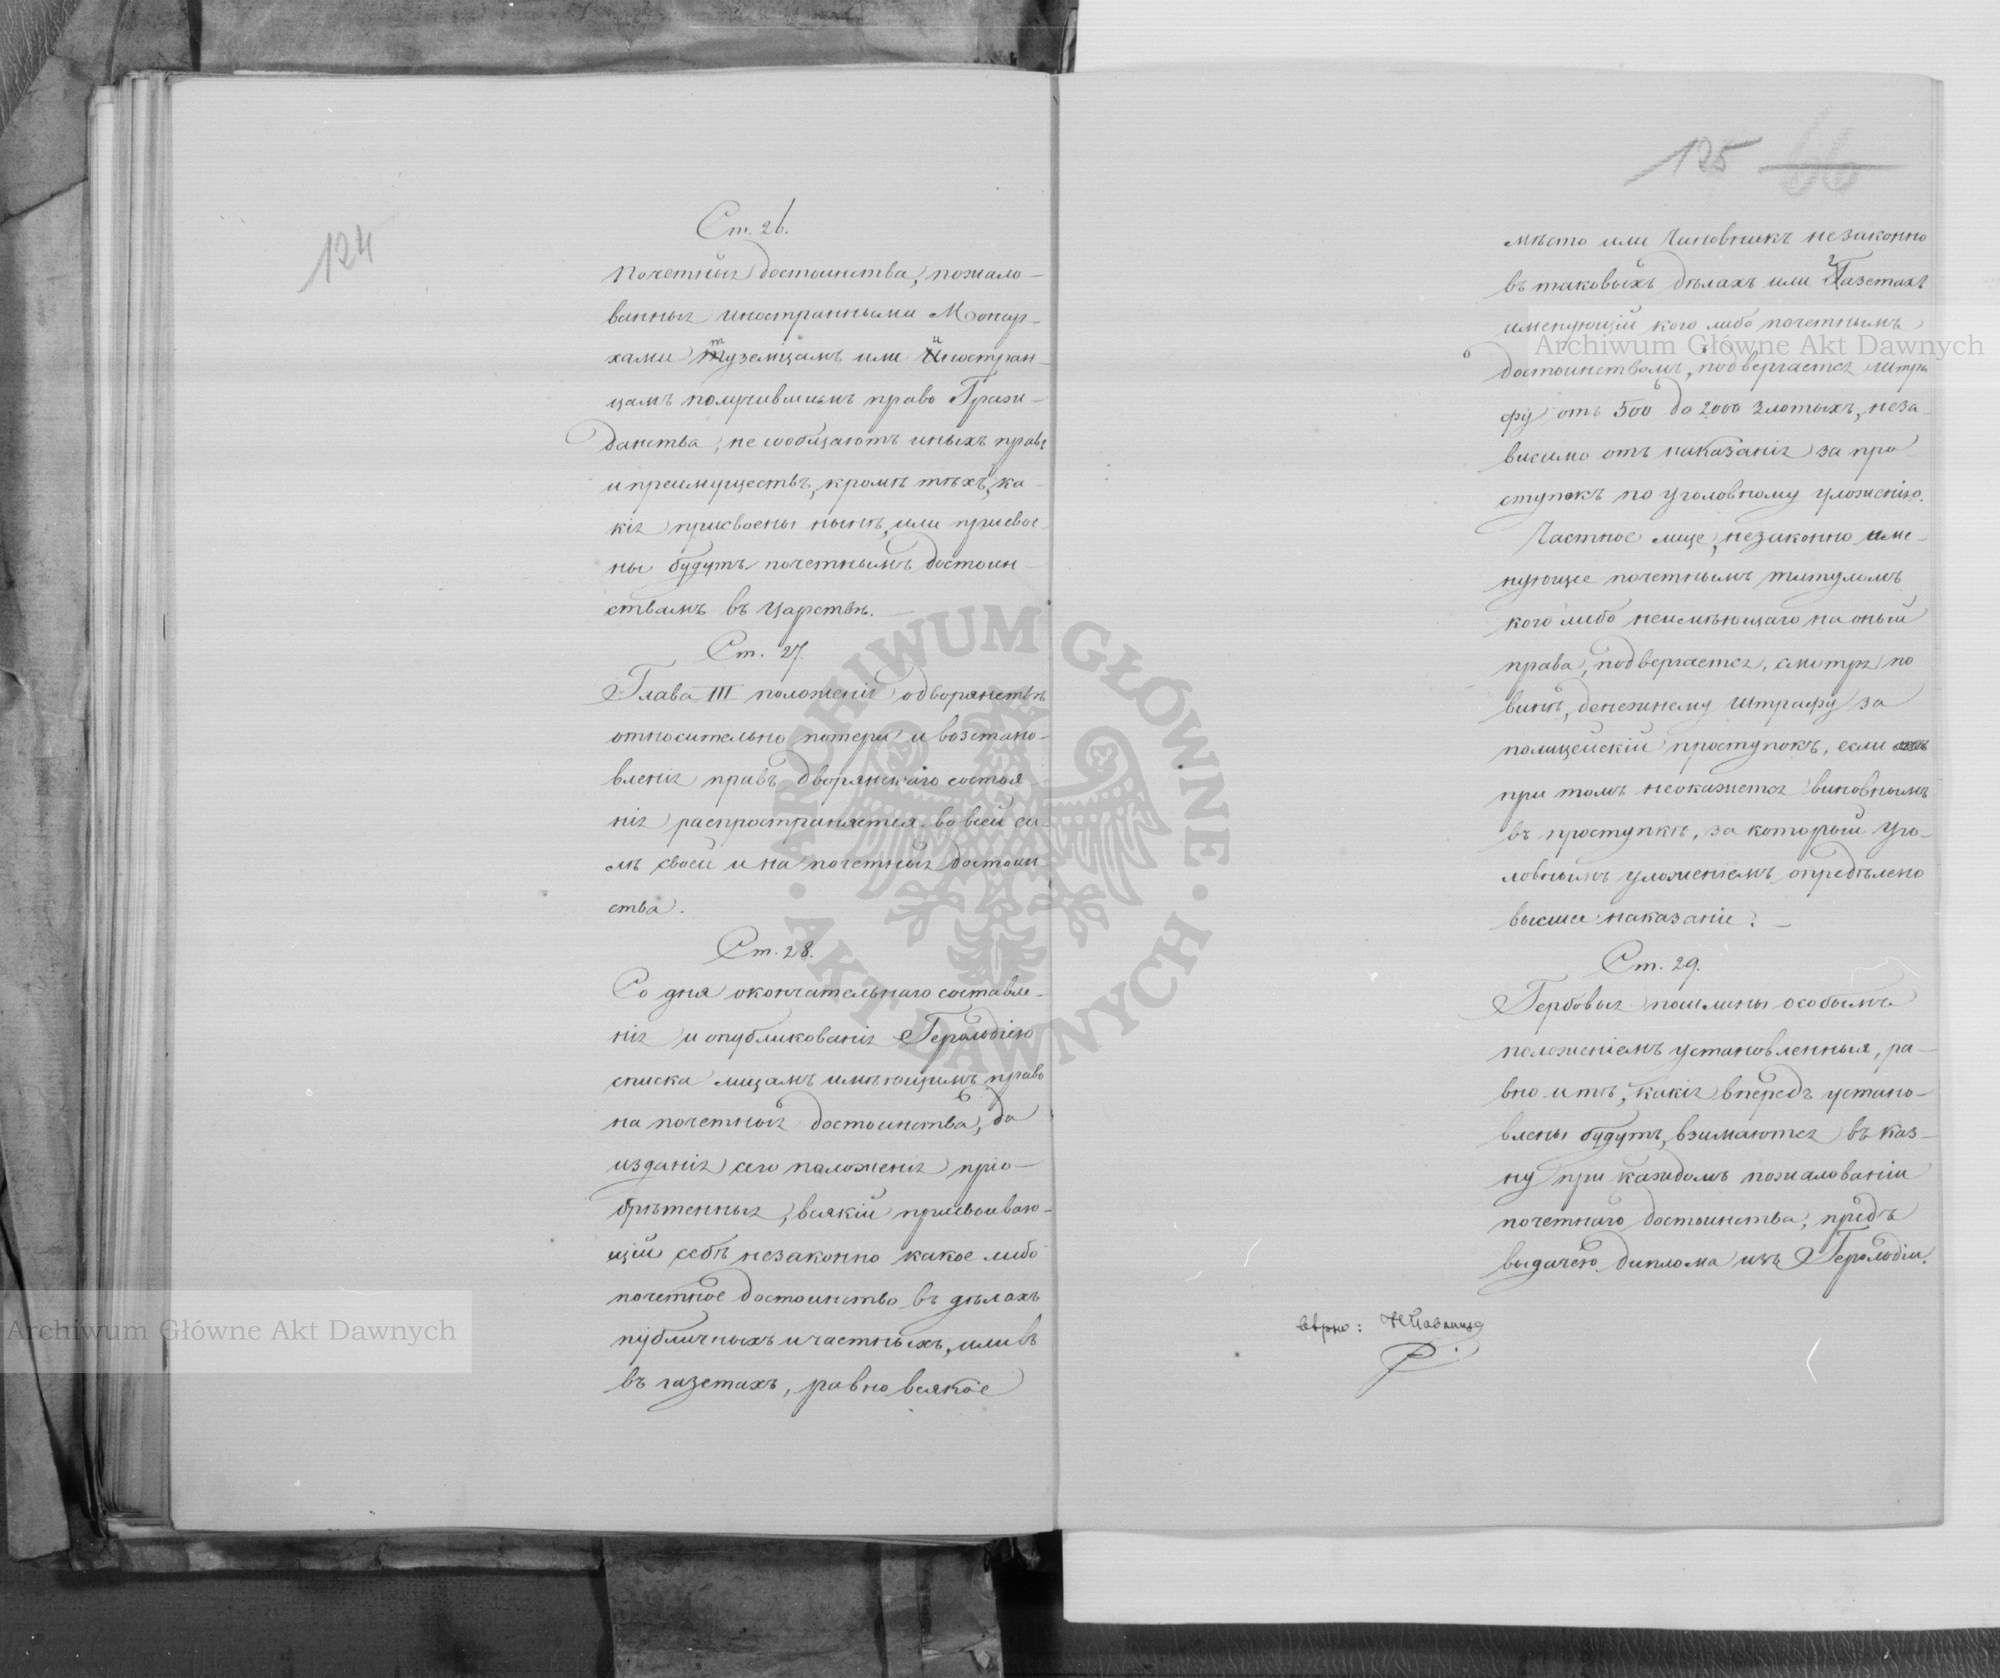 124
Ст. 26.
Почетныя достоинства, пожало-
ванныя иностранными Монар-
хами туземцамъ или иностран-
цамъ получившимъ право Граж-
данства, не сообщаютъ иныхъ правъ
и преимуществъ, кромѣ тѣхъ, ка-
кія присвоены нынѣ, или присвое-
ны будутъ почетнымъ достоин-
ствамъ въ Царствѣ.
Ст. 27.
Глава III положенія о дворянствѣ
относительно потери и возстано-
вленія правъ дворянскаго состоя
нія распространяется во всей си-
лѣ своей и на почетныя достоин
ства.
Ст. 28.
Со дня окончательнаго составле-
нія и опубликованія Герольдіею
списка лицамъ имѣющимъ право
на почетныя достоинства, до
изданія сего положенія пріо-
брѣтенныя, всякій присвоиваю-
щій себѣ незаконно какое либо
почетное достоинство въ дѣлахъ
публичныхъ и частныхъ, или въ
въ газетахъ, равно всякое
125 66
мѣсто или Чиновникъ незаконно
въ таковыхъ дѣлахъ или газетахъ
именующій кого либо почетнымъ
достоинствомъ, подвергается штра
фу отъ 500 до 2000 Злотыхъ, неза-
висимо отъ наказанія за про-
ступокъ по уголовному уложенію.
Частное лице, незаконно име-
нующее почетнымъ титуломъ
кого либо неимѣющаго на оный
права, подвергается, смотря по
винѣ, денежному штрафу за
полицейскій проступокъ, если
при томъ неокажется виновнымъ
въ проступкѣ, за который Уго-
ловнымъ уложеніемъ опредѣлено
высшее наказаніе.
Ст. 29.
Гербовыя пошлины особымъ
положеніемъ установленныя, ра-
вно и тѣ, какія впередъ устано-
влены будутъ, взимаются въ каз-
ну при каждомъ пожалованіи
почетнаго достоинства, предъ
выдачею диплома изъ Герольдіи.
вѣрно:
Archiwum Główne Akt Dawnych
Archiwum Główne Akt Dawnych
ARCHIWUM GŁÓWNE · AKT DAWNYCH ·